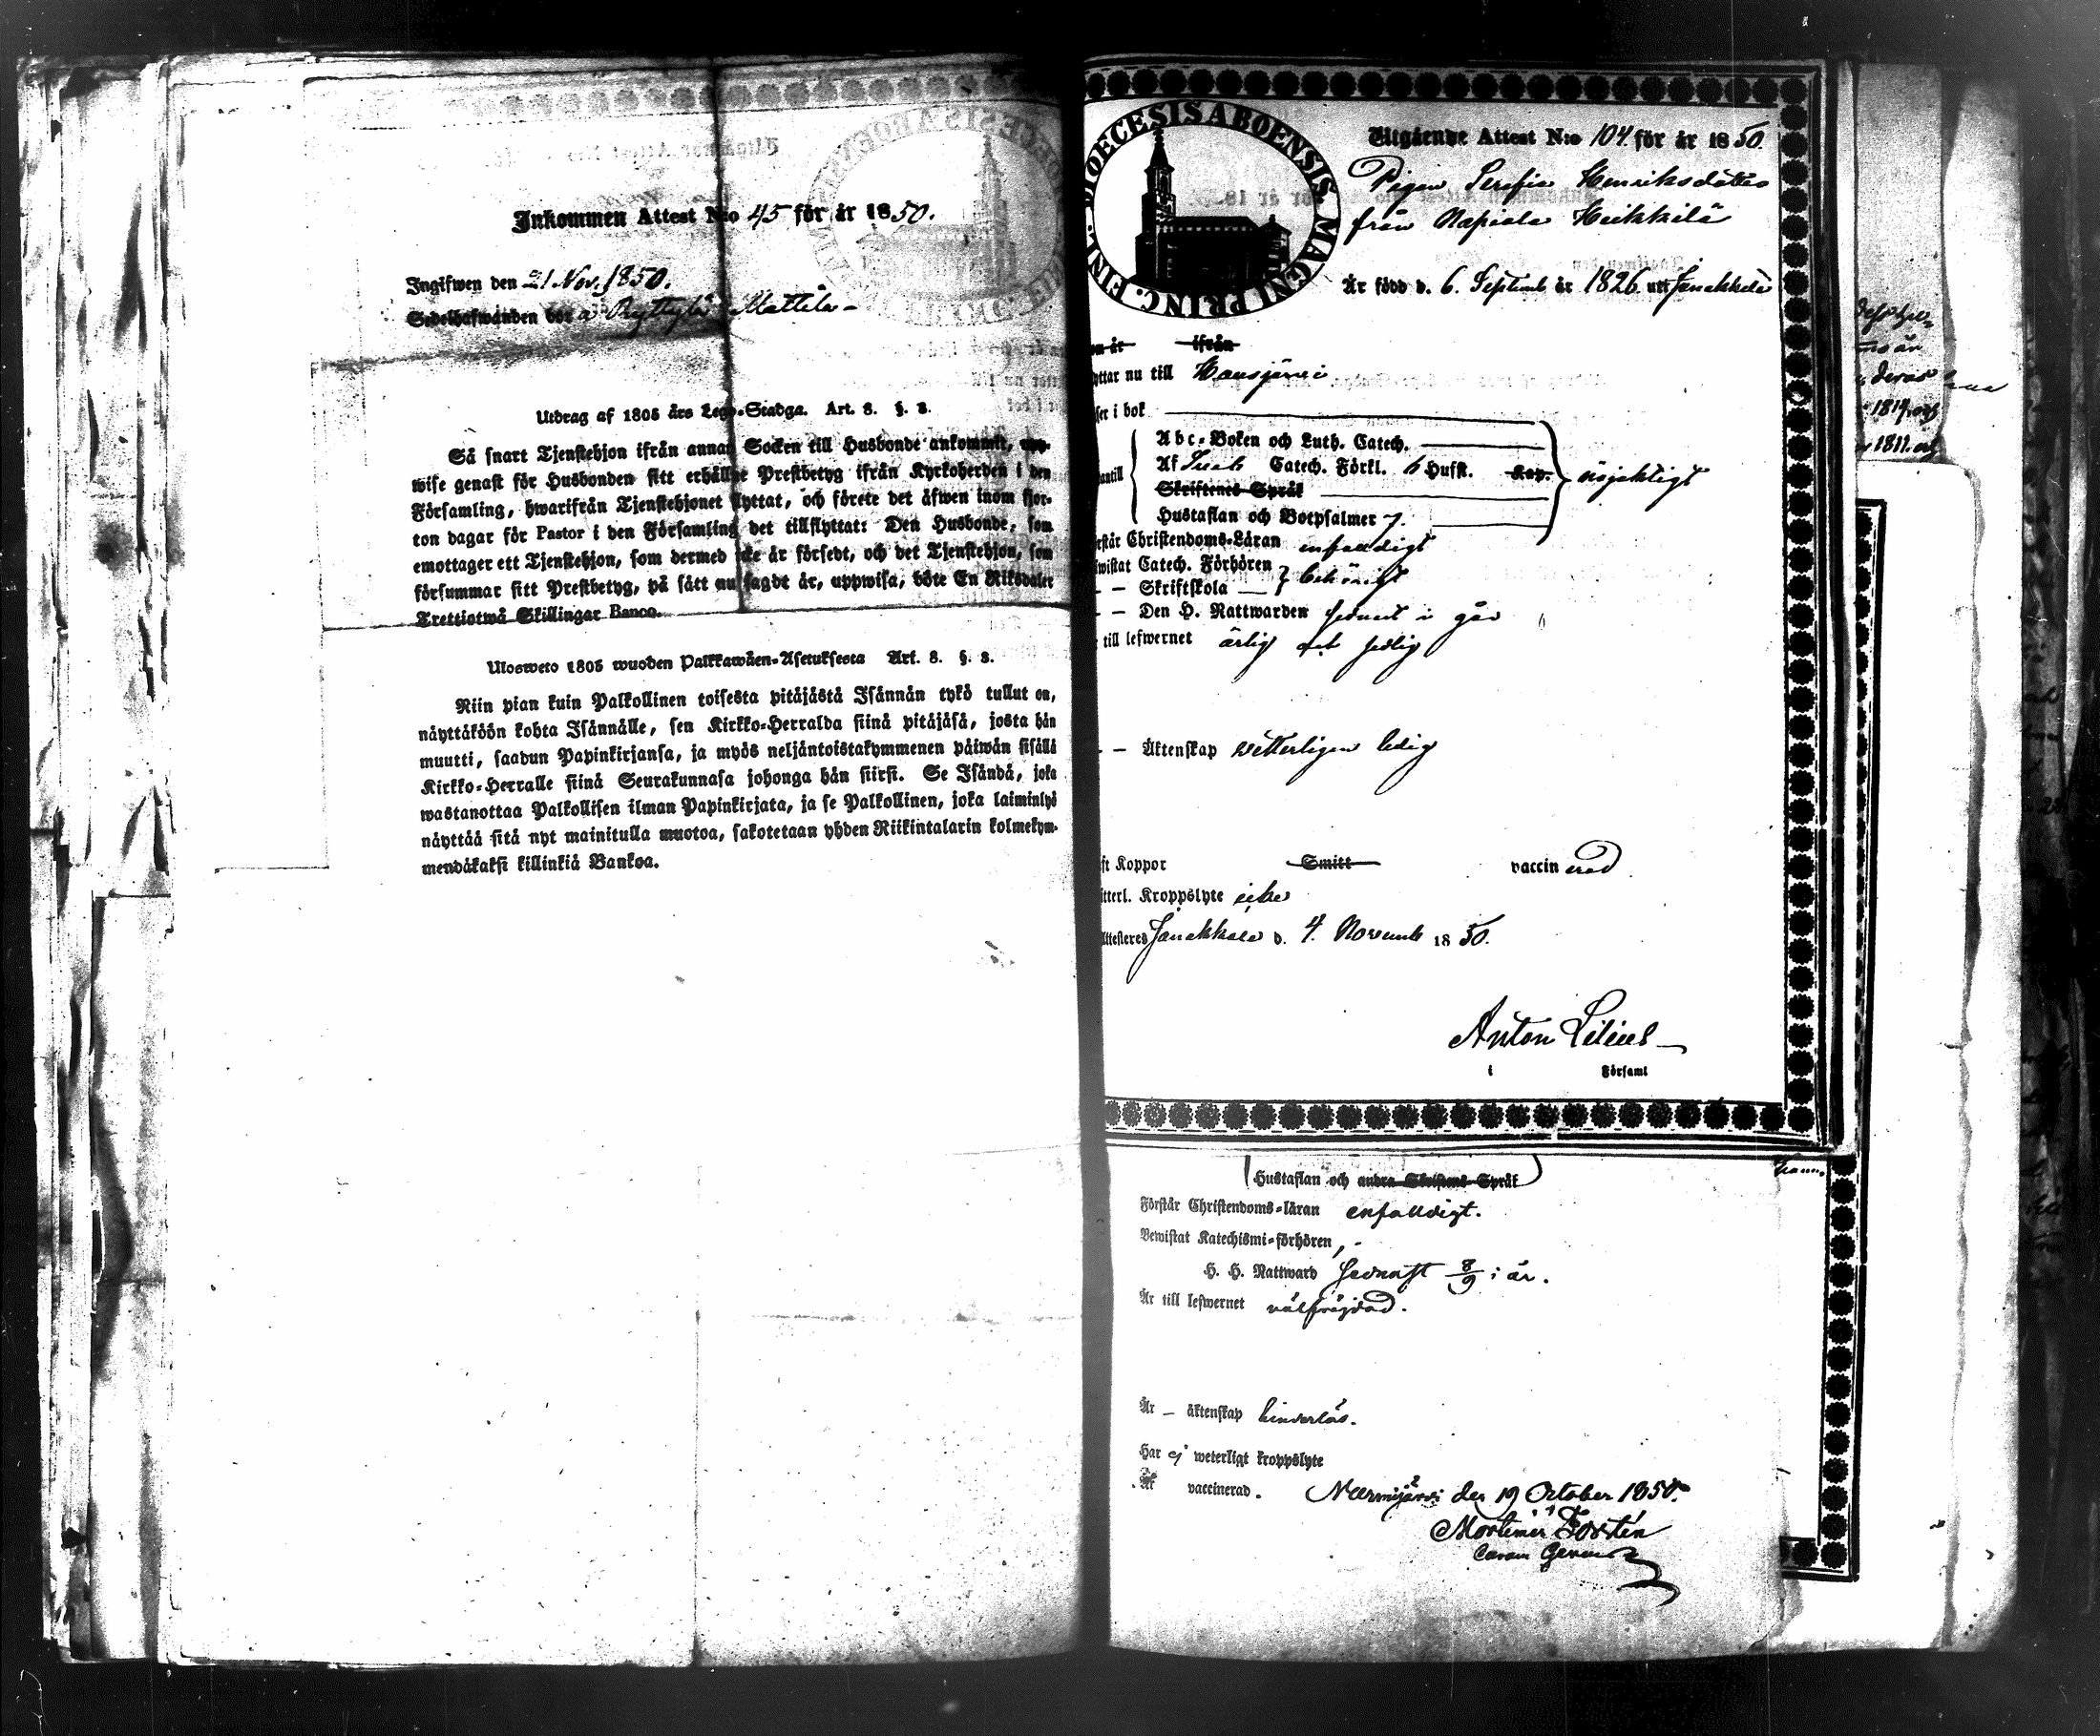 Inkommen Attest N:o 45 för år 1850.
Ingifwen den 21 Nov. 1850.
Sedelhafwanden bor å Ryttylä Mattila
Utdrag af 1805 års Lego-Stadga. Art. 8. §. 8.
Så snart Tjenstehjon ifrån annan Socken till Husbonde ankommit, upp-
wise genast för Husbonden sitt erhållne Prestbetyg ifrån Kyrkoherden i den
Församling, hwarifrån Tjenstehjonet flyttat, och förete det äfwen inom fjor-
ton dagar för Pastor i den Församling det tillflyttat: Den Husbonde, som
emottager ett Tjenstehjon, som dermed icke är försedt, och det Tjenstehjon, som
försummar sitt Prestbetyg, på sätt nu sagdt är, uppwisa, böte En Riksdaler
Trettiotwå Skillingar Banco.
Ulosweto 1805 wuoden Palkkawäen-Asetuksesta Art. 8. §. 8.
Niin pian kuin Palkollinen toisesta pitäjästä Isännän tykö tullut on,
näyttäköön kohta Isännälle, sen Kirkko-Herralda siinä pitäjäsä, josta hän
muutti, saadun Papinkirjansa, ja myös neljäntoistakymmenen päiwän sisällä
Kirkko-Herralle siinä Seurakunnasa johonga hän siirsi. Se Isändä, joka
wastanottaa Palkollisen ilman Papinkirjata, ja se Palkollinen, joka laiminlyö
näyttää sitä nyt mainitulla muotoa, sakotetaan yhden Riikintalarin kolmekym-
mendäkaksi killinkiä Bankoa.
DIOECESIS ABOENSIS MAGNI PRINC. FINL.
Utgående Attest N:o 104 för år 1850.
Pigan Serafia Henriksdotter
från Napiala Heikkilä
Är född d. 6. Septemb år 1826 uti Janakkala
om år ifrån
yttar nu till Hausjärvi
ser i bok
Abc-Boken och Luth. Catech.
Af Catech. Förkl. 6 Hufst. Kap.
Skriftenes Språk
Hustaflan och Botpsalmer 7.
rstår Christendoms-Läran enfaldigt
wistat Catech. Förhören
— Skriftskola —
— Den H. Nattwarden senast i går
till lefwernet ärlig och sedlig
— Äktenskap wetterligen ledig
ft Koppor Smitt vaccinerad
itterl. Kroppslyte icke
Attesteres Janakkala d. 4. Novemb 1850.
Anton Lilius
i Församl
Hustaflan och andra Skriftens-Språk
Förstår Christendoms-läran enfalldigt.
Bewistat Katechismi-förhören,
H. H. Nattward sednast 8/9 i år.
Är till lefwernet välfrejdad.
Är — äktenskap hinderlös.
Har ej weterligt kroppslyte
Är vaccinerad. Nurmijärvi den 19 October 1850.
Mortimer Fortén